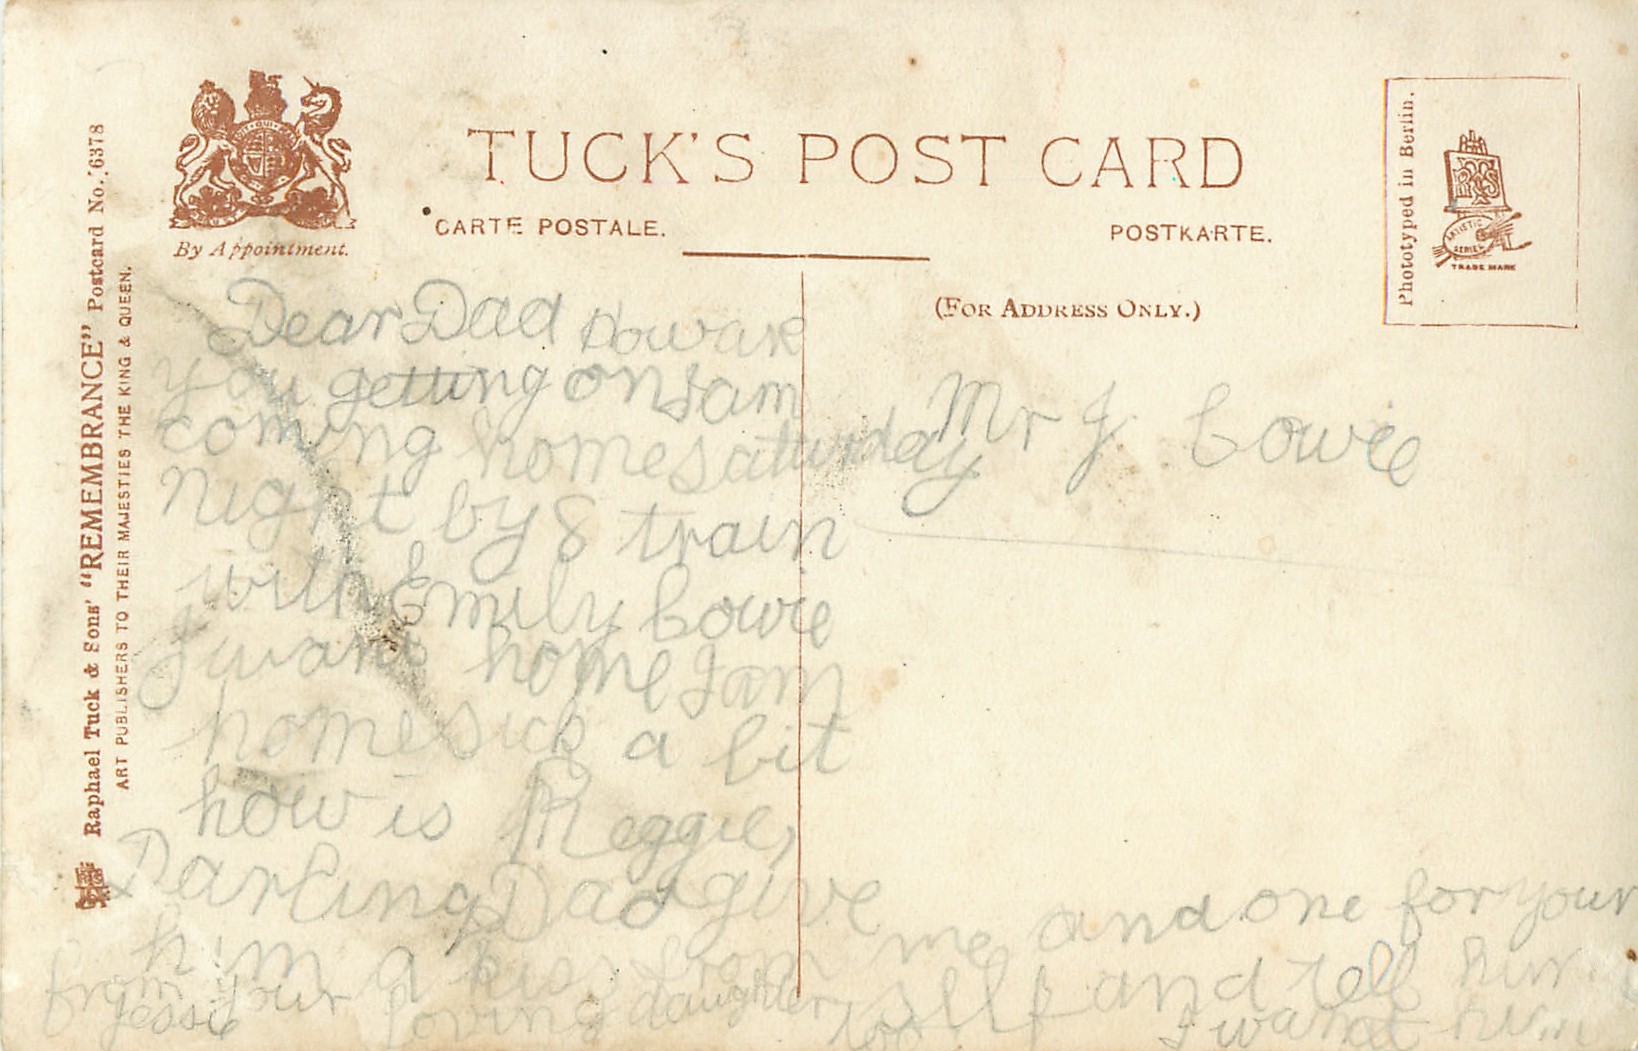 TUCK'S POST CARD
CARTE POSTALE.
POSTKARTE.
(FOR ADDRESS ONLY.)
By Appointment.
Raphael Tuck & Sons' "REMEMBRANCE" Postcard No. 6378
ART PUBLISHERS TO THEIR MAJESTIES THE KING & QUEEN.
Phototyped in Berlin.
ARTISTIC SERIES
TRADE MARK
Dear Dad How are
you getting on I am
coming home Saturday
night by 8 train
with Emily Cowie
I want home I am
homesick a bit
how is Reggie,
Darling Dad give
him a kiss from
me and one for your
sellf and tell him
I want him
too
from your loving daughter
Jessie
Mr J. Cowie